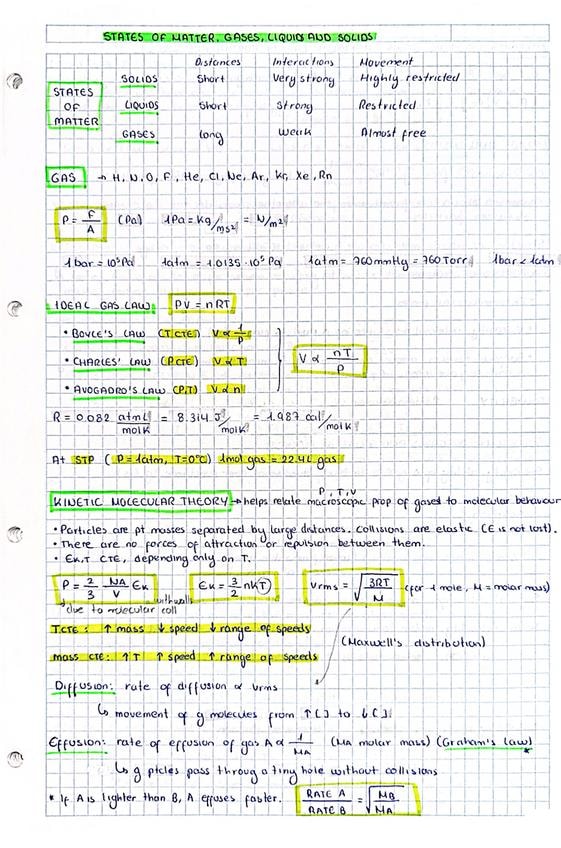 STATES OF MATTER, GASES, LIQUID AND SOLIDS
Distances Interactions Movement
STATES OF MATTER
SOLIDS Short Very strong Highly restricted
LIQUIDS Short Strong Restricted
GASES Long Weak Almost free
GAS → H, N, O, F, He, Cl, Ne, Ar, Kr, Xe, Rn
P = F/A (Pa) 1Pa = kg/ms² = N/m²
1 bar = 10⁵ Pa 1atm = 1.0135·10⁵ Pa 1atm = 760mmHg = 760Torr 1bar < 1atm
IDEAL GAS LAW PV = nRT
• BOYLE'S LAW (T CTE) V ∝ 1/P
• CHARLES' LAW (P CTE) V ∝ T
• AVOGADRO'S LAW (P,T) V ∝ n
V ∝ nT/P
R = 0.082 atmL/molK = 8.314 J/molK = 1.987 cal/molK
At STP (P = 1atm, T=0°C) 1mol gas = 22.4L gas
P, T, V
KINETIC MOLECULAR THEORY → helps relate macroscopic prop of gases to molecular behaviour
• Particles are pt masses separated by large distances. Collisions are elastic (E is not lost).
• There are no forces of attraction or repulsion between them.
• Ek,T CTE, depending only on T.
P = 2/3 NA/V Ek Ek = 3/2 nkT Vrms = √3RT/M (for 1 mole, M = molar mass)
due to molecular coll with walls
T CTE: ↑ mass ↓ speed ↓ range of speeds
(Maxwell's distribution)
mass CTE: ↑ T ↑ speed ↑ range of speeds
Diffusion: rate of diffusion ∝ Vrms
↳ movement of g molecules from ↑[ ] to ↓[ ]
Effusion: rate of effusion of gas A ∝ 1/MA (MA molar mass) (Graham's law)*
↳ g ptcles pass through a tiny hole without collisions
* If A is lighter than B, A effuses faster. RATE A/RATE B = √MB/MA